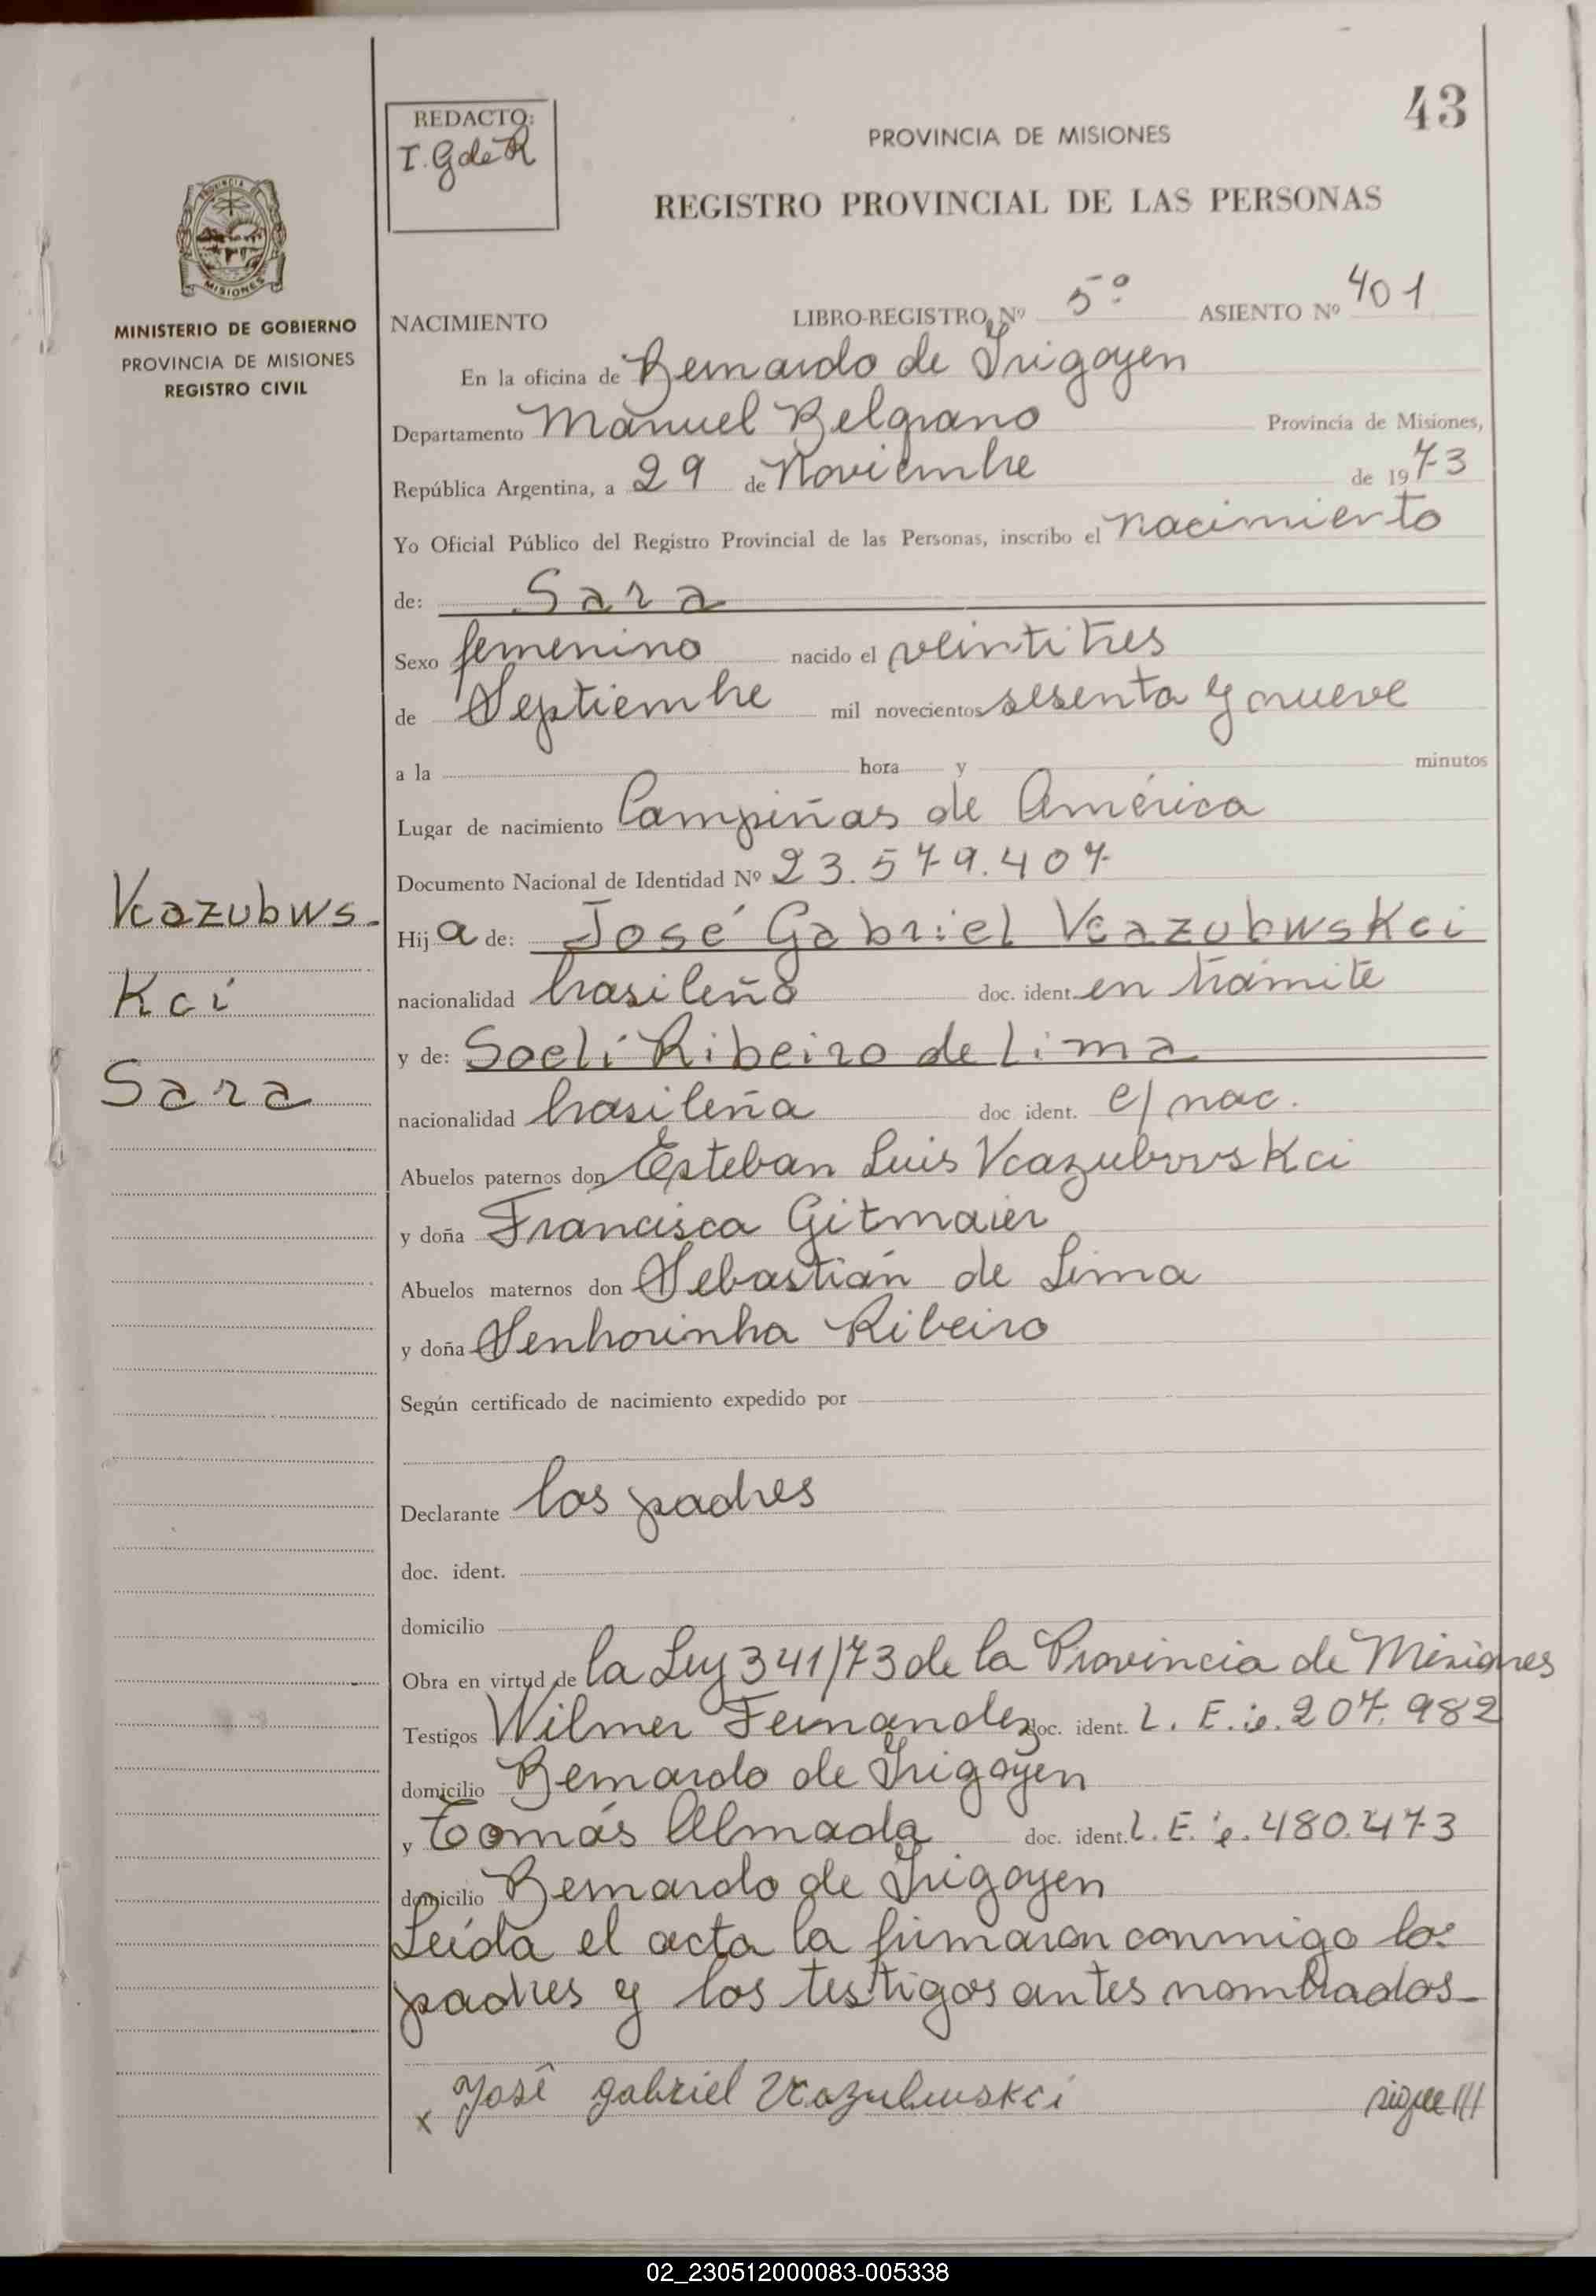 43
REDACTO:
I. G de R
PROVINCIA DE MISIONES
REGISTRO PROVINCIAL DE LAS PERSONAS
MISIONES
MINISTERIO DE GOBIERNO
PROVINCIA DE MISIONES
REGISTRO CIVIL
NACIMIENTO LIBRO-REGISTRO Nº 5º ASIENTO Nº 401
En la oficina de Bernardo de Irigoyen
Departamento Manuel Belgrano Provincia de Misiones,
República Argentina, a 29 de Noviembre de 1973
Yo Oficial Público del Registro Provincial de las Personas, inscribo el nacimiento
de: Sara
Sexo femenino nacido el veintitres
de Septiembre mil novecientos sesenta y nueve
a la hora y minutos
Lugar de nacimiento Campiñas de América
Documento Nacional de Identidad Nº 23.579.407
Vcazubws-
Kci
Sara
Hija de: José Gabriel Vcazubwskci
nacionalidad brasileño doc. ident. en trámite
y de: Soelí Ribeiro de Lima
nacionalidad brasileña doc ident. c/ nac.
Abuelos paternos don Esteban Luis Vcazubwskci
y doña Francisca Gitmaier
Abuelos maternos don Sebastián de Lima
y doña Senhorinha Ribeiro
Según certificado de nacimiento expedido por
Declarante los padres
doc. ident.
domicilio
Obra en virtud de la Ley 341/73 de la Provincia de Misiones
Testigos Wilmer Fernandez doc. ident. L. E. 207.982
domicilio Bernardo de Irigoyen
y Tomás Almada doc. ident. L. E. 480.473
domicilio Bernardo de Irigoyen
Leída el acta la firmaron conmigo los
padres y los testigos antes nombrados-
x José gabriel Vcazubwskci sigue///
02_230512000083-005338